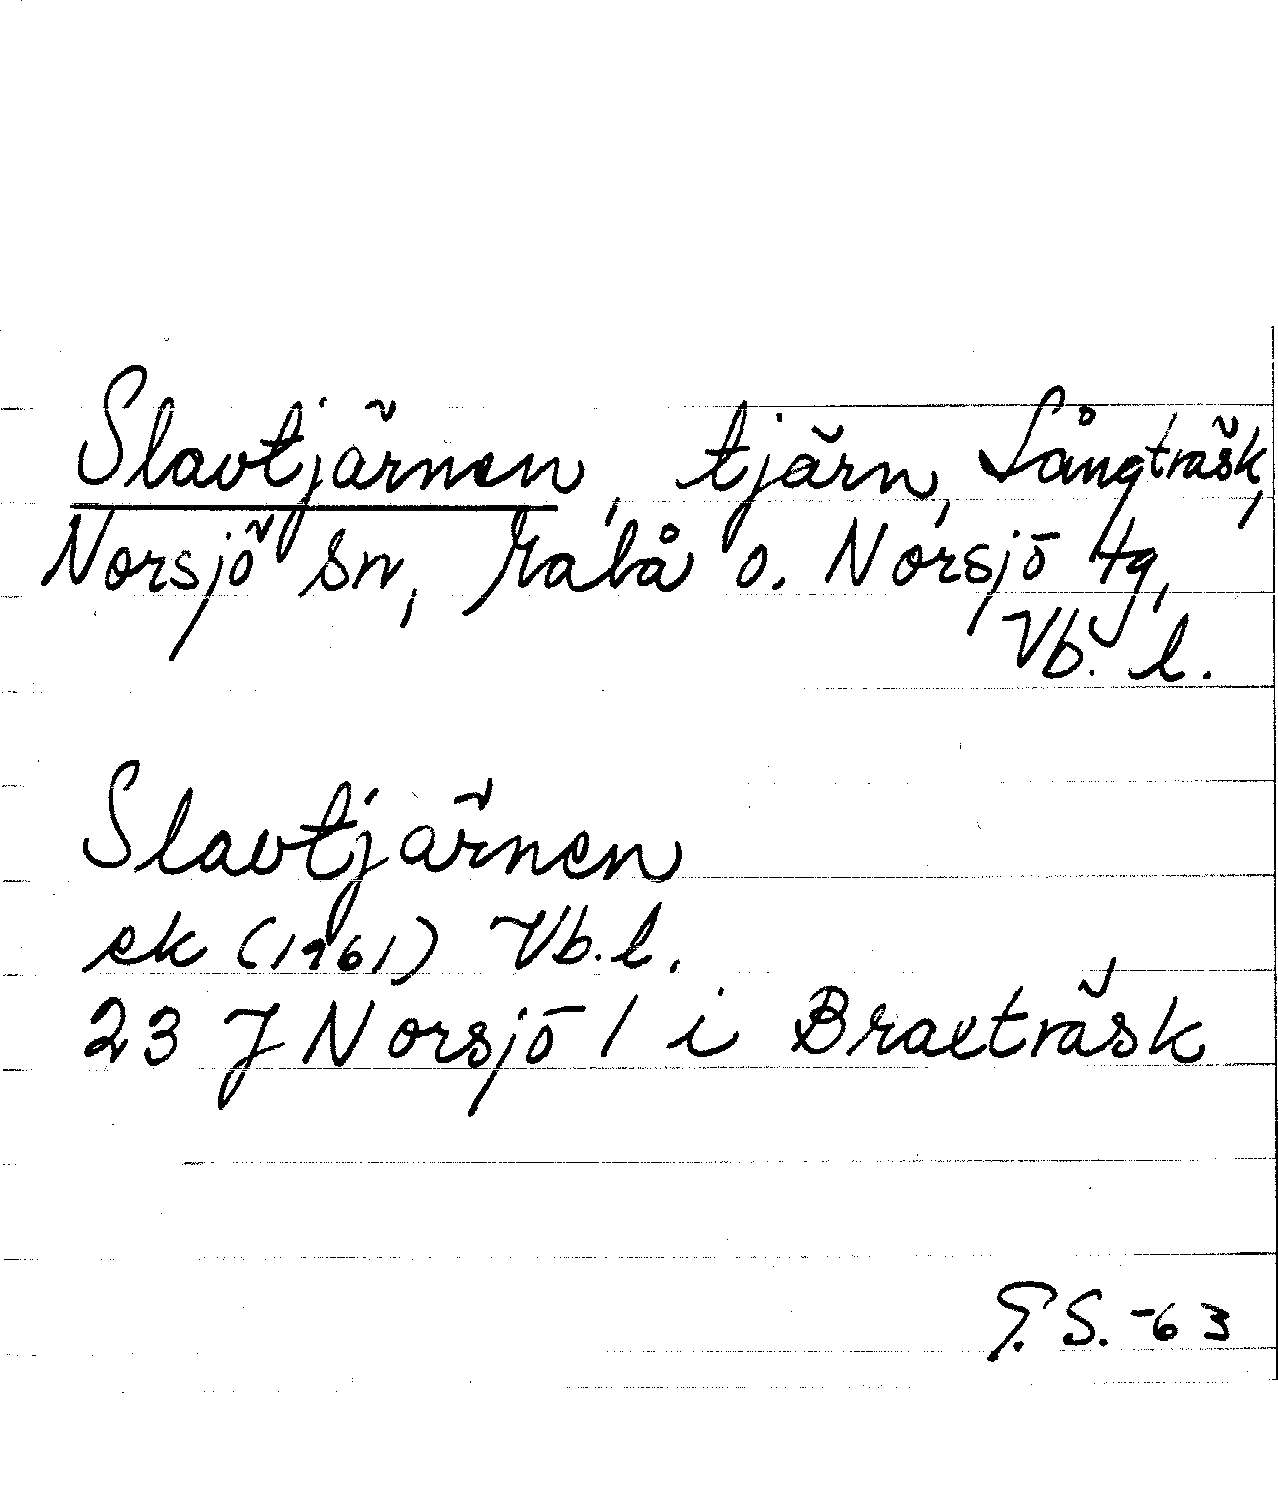 Slavtjärnen, tjärn, Långträsk,
Norsjö sn, Malå o. Norsjö tg,
Vb. l.
Slavtjärnen
ek (1961) Vb. l.
23 J Norsjö 1 i Braxträsk
G. S. -63